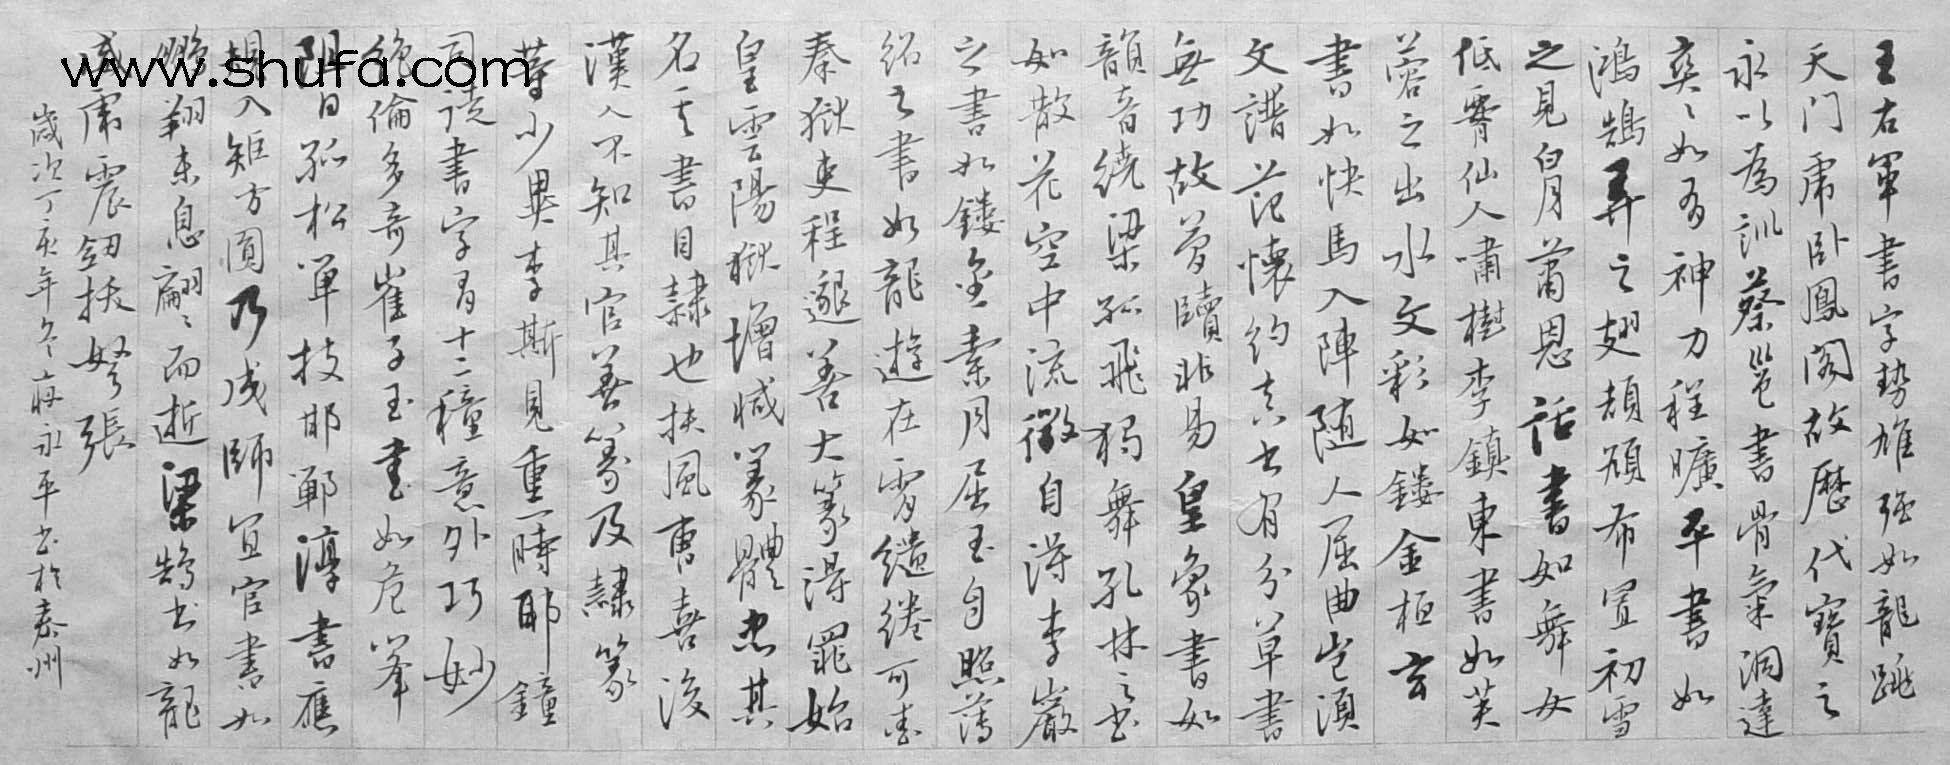 www.shufa.com
王右軍書字勢雄強如龍跳
天门虎卧鳳閣故歷代寶之
永以為訓蔡邕書骨氣洞達
爽爽如有神力程曠平書如
鴻鵠弄之翅頡頏布置初雪
之見白月蕭恩話書如舞女
低署仙人嘯樹李鎮東書如芙
蓉之出水文彩如鏤金桓玄
書如快馬入陣随人屈曲豈須
文譜范懷約真書有分草書
無功故簡牘非易皇象書如
韻音繞梁孤飛獨舞孔林之书
如散花空中流徽自得李巖
之書如鏤金素月屈玉自照薄
紹之書如龍遊在霄繾綣可愛
秦獄吏程邈善大篆得罪始
皇雲陽獄增減篆體去其
名其書曰隸也扶風曹喜後
漢人不知其官善篆及隸篆
少異李斯見重一時耶鐘
司徒書字有十二種意外巧妙
絶倫多奇崔子玉書如危峯
阻日孤松单枝邯鄲淳書應
規入矩方圓乃成師宜官書如
鵬翔未息翩翩而逝梁鵠书如龍
威虎震劒拔弩張
歲次丁亥年冬 永平书於秦州